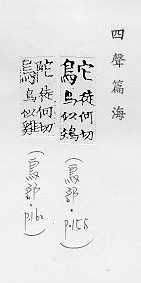 四聲篇海
它徒何切
鳥鳥似
(鳥部·p.158)
陀徒何切
鳥鳥似雞
(鳥部·p.160)